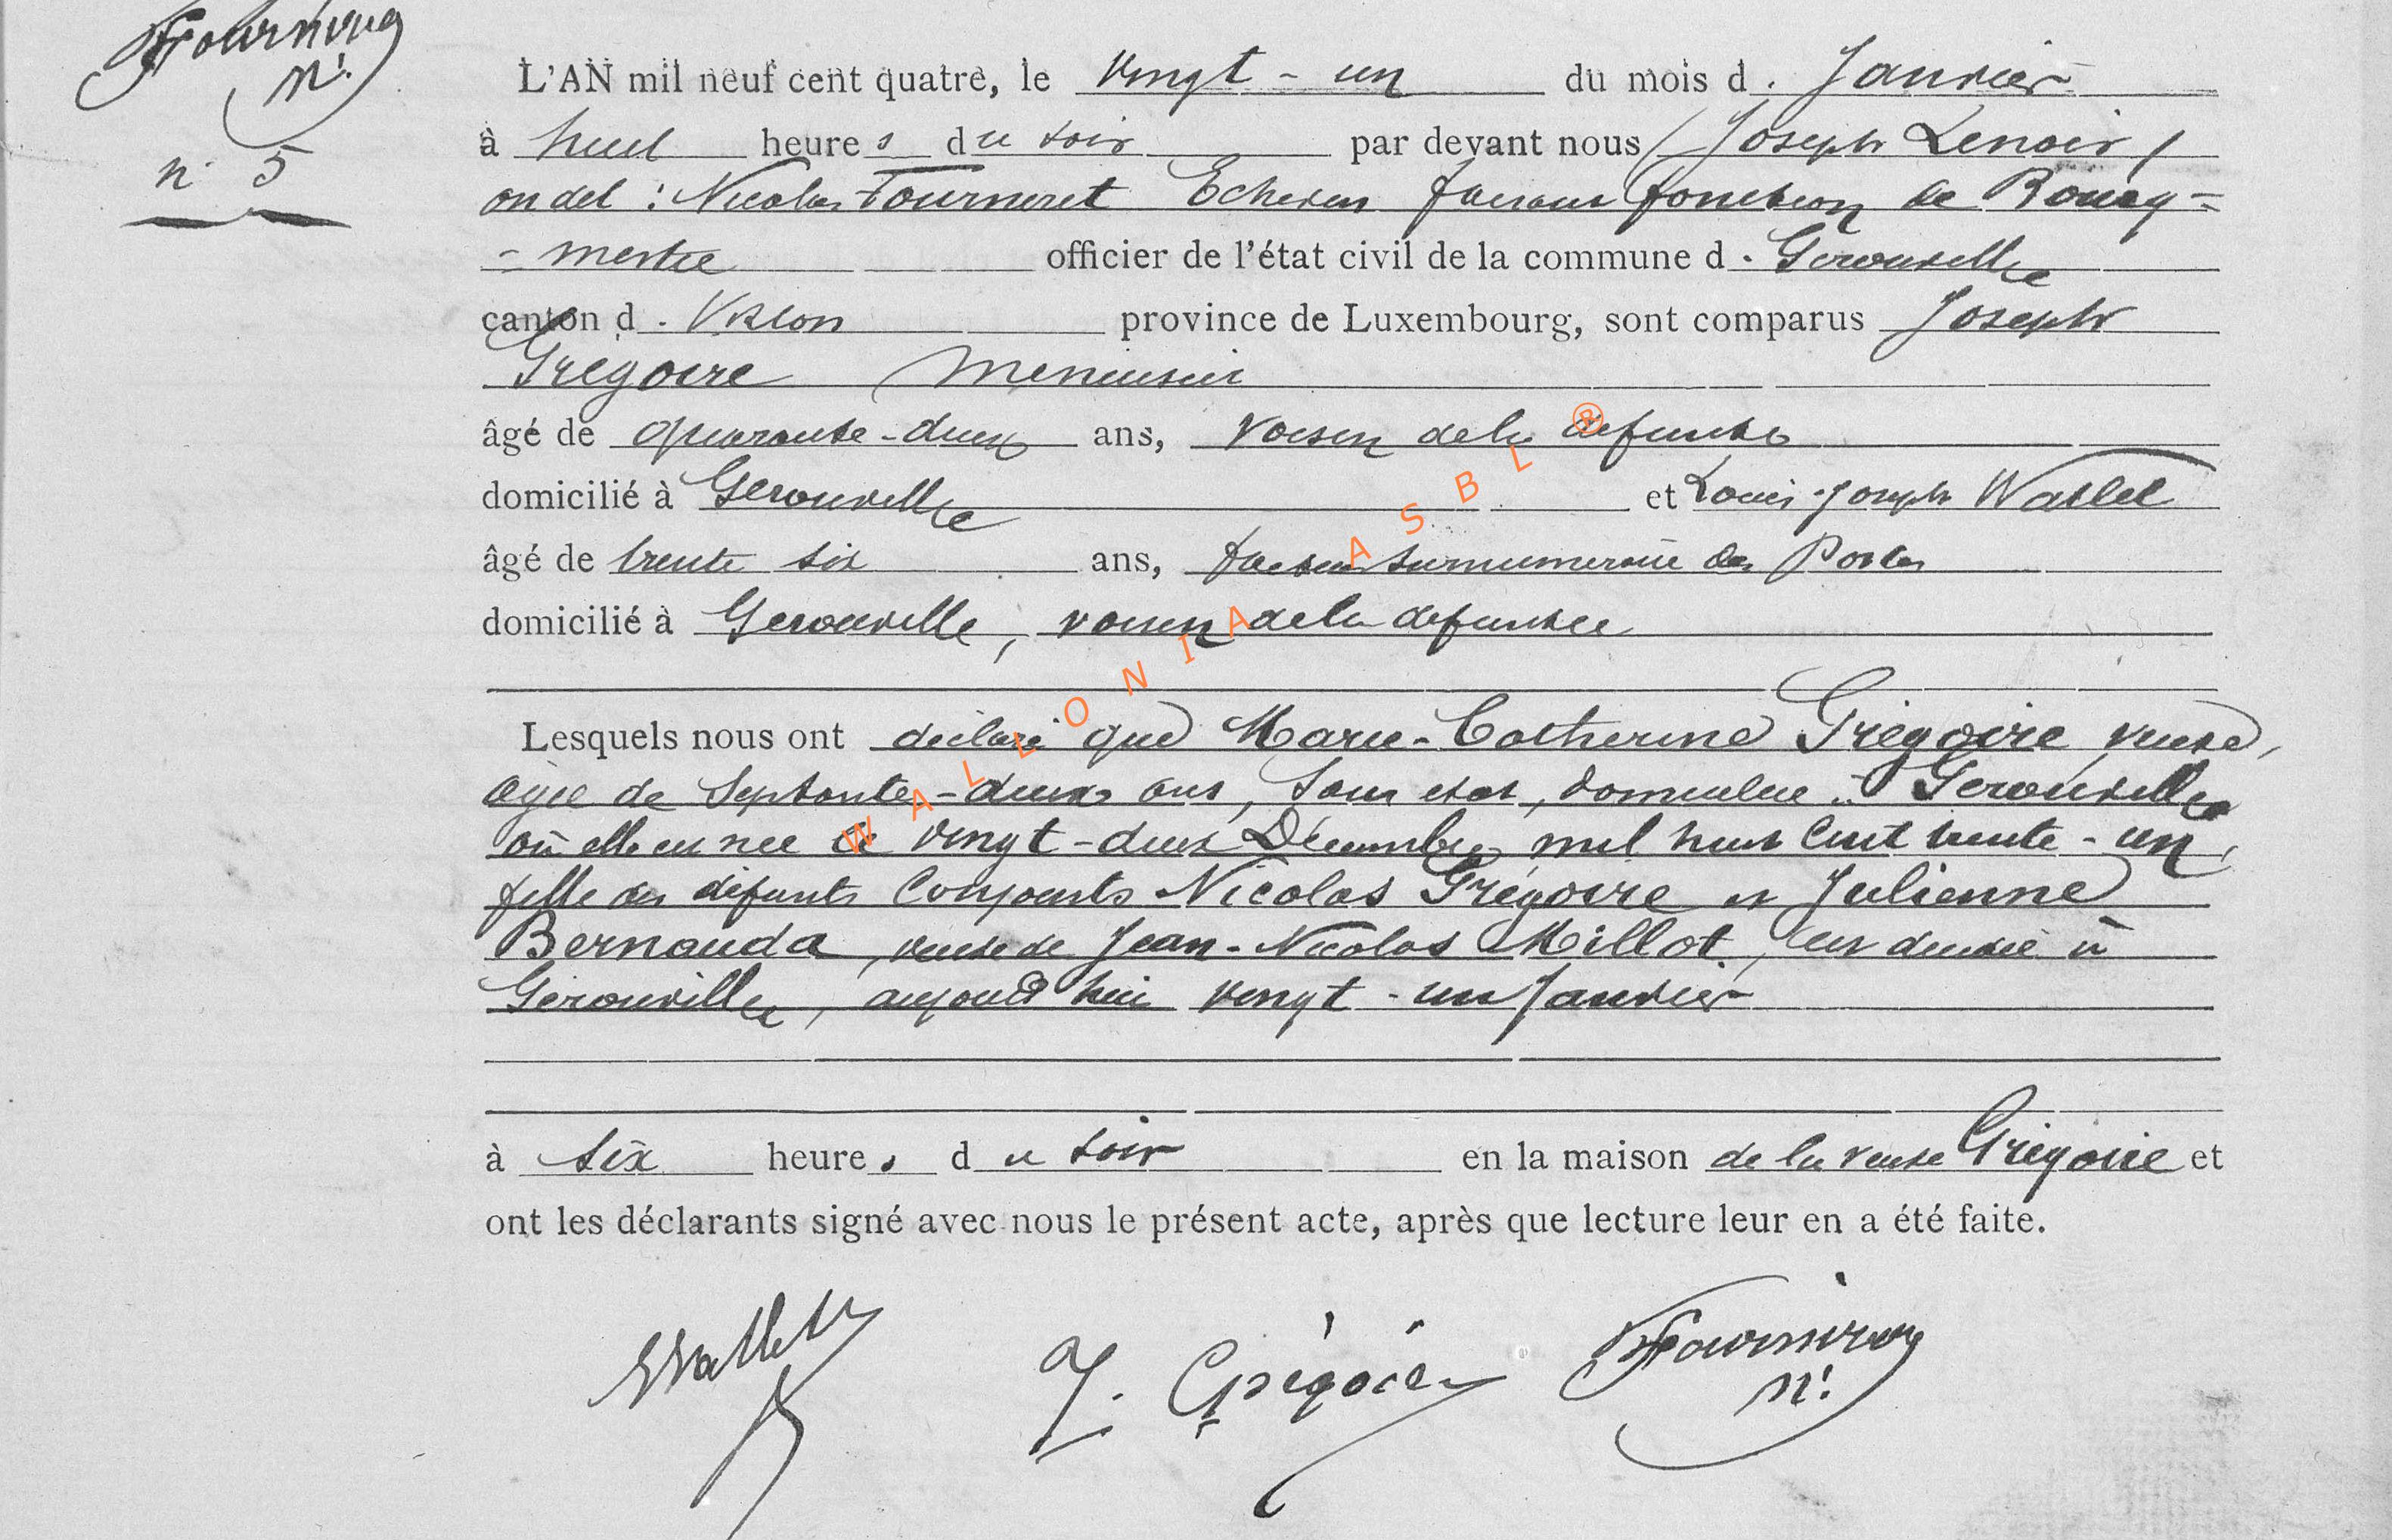 n° 5
L'AN mil neuf cent quatre, le vingt-un du mois d. Janvier
à huit heures du soir par devant nous (Joseph Lenoir)
on dit : Nicolas Tourneret Echevin faisant fonction de Bourg=
-mestre officier de l'état civil de la commune d. Gérouville
canton d. Virton province de Luxembourg, sont comparus Joseph
Grégoire Menuisier
âgé de quarante-deux ans, voisin de la défunte
domicilié à Gérouville et Louis-Joseph Wallet
âgé de trente six ans, facteur surnumeraire des Postes
domicilié à Gérouville, voisin de la défunte
Lesquels nous ont déclaré que Marie-Catherine Grégoire, veuve,
agée de Septante-deux ans, sans état, domiciliée à Gérouville
où elle est née le vingt-deux Décembre mil huit cent trente-un,
fille des défunts Conjoints Nicolas Grégoire et Julienne
Bernauda, veuve de Jean-Nicolas Millot, est décédée à
Gérouville, aujourd'hui vingt-un Janvier
à six heures du soir en la maison de la veuve Grégoire et
ont les déclarants signé avec nous le présent acte, après que lecture leur en a été faite.
Wallet J. Grégoire
WALLONIA ASBL ®